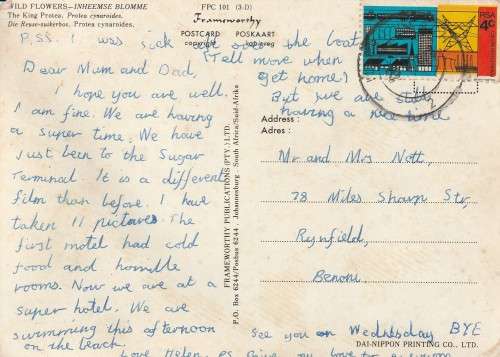 WILD FLOWERS—INHEEMSE BLOMME
The King Protea. Protea cynaroides.
Die Reuse-suikerbos. Protea cynaroides.
FPC 101 (3-D)
Frameworthy
POSTCARD POSKAART
copyright kopiereg
RSA
4c
P.S.S. I was sick over the boat
(Tell more when
get home)
But we are still
having a nice time
Dear Mum and Dad,
I hope you are well.
I am fine. We are having
a super time. We have
just been to the Sugar
Terminal. It is a different
film than before. I have
taken 11 pictures. The
first motel had cold
food and horrible
rooms. Now we are at a
super hotel. We are
swimming this afternoon
on the beach.
Love Helen. PS Give my love to everyone
See you on Wednesday BYE
FRAMEWORTHY PUBLICATIONS (PTY.) LTD.
P.O. Box 6244/Posbus 6244 / Johannesburg South Africa/Suid-Afrika
Address :
Adres :
Mr and Mrs Nott,
28 Miles Sharp Str,
Rynfield,
Benoni.
DAI-NIPPON PRINTING CO., LTD.